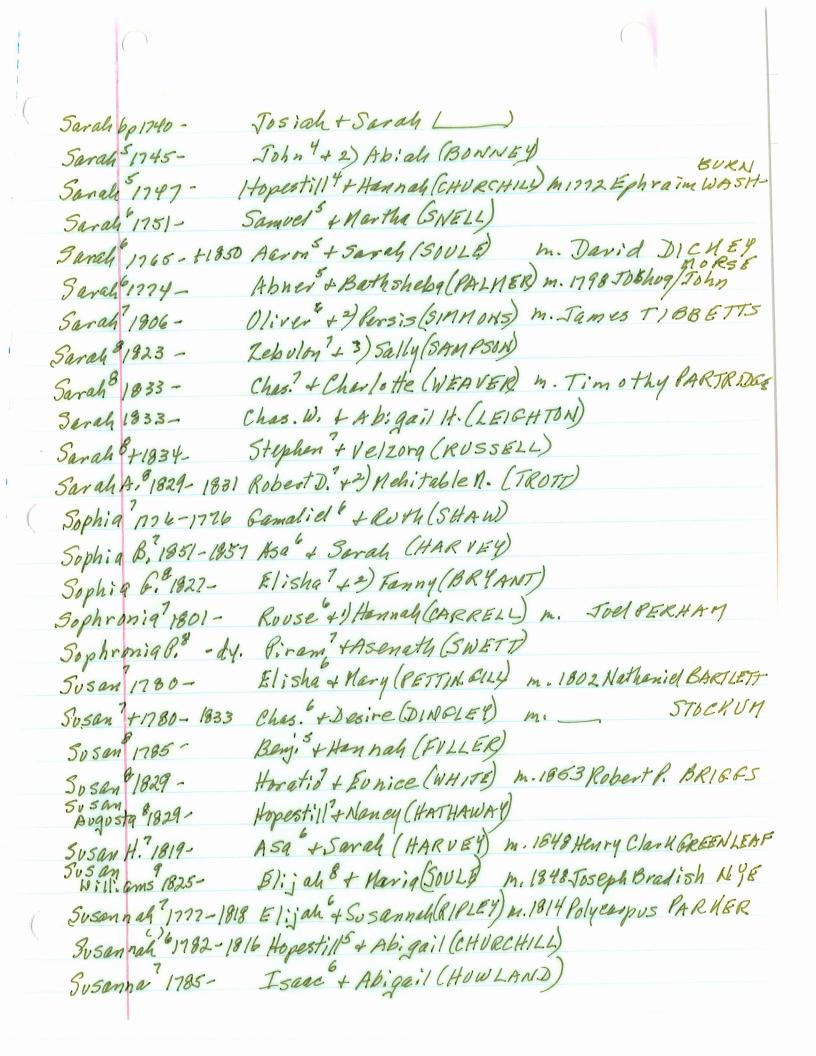 Sarah bp 1740 - Josiah + Sarah (______)
Sarah⁵ 1745- John⁴ + 2) Abiah (BONNEY)
BURN
Sarah⁵ 1747- Hopestill⁴ + Hannah (CHURCHILL) m 1772 Ephraim WASH-
Sarah⁶ 1751- Samuel⁵ + Martha (SNELL)
Sarah⁶ 1765- +1850 Aaron⁵ + Sarah (SOULE) m. David DICKEY
MORSE
Sarah⁶ 1774- Abner⁵ + Bathsheba (PALMER) m. 1798 Joshua/John
Sarah⁷ 1806- Oliver⁶ + 2) Persis (SIMMONS) m. James TIBBETTS
Sarah⁸ 1823 - Zebulon⁷ + 3) Sally (SAMPSON)
Sarah⁸ 1833 - Chas.⁷ + Charlotte (WEAVER) m. Timothy PARTRIDGE
Sarah 1833- Chas. W. + Abigail H. (LEIGHTON)
Sarah⁸ +1834- Stephen⁷ + Velzora (RUSSELL)
Sarah A.⁸ 1829- 1831 Robert D.⁷ + 2) Mehitable N. (TROTT)
Sophia⁷ 1776-1776 Gamaliel⁶ + Ruth (SHAW)
Sophia B.⁷ 1851-1857 Asa⁶ + Sarah (HARVEY)
Sophia G.⁸ 1827- Elisha⁷ + 2) Fanny (BRYANT)
Sophronia⁷ 1801- Rouse⁶ + 1) Hannah (CARRELL) m. Joel PERHAM
Sophronia P.⁸ - dy. Piram⁷ + Asenath (SWETT)
Susan⁷ 1780- Elisha⁶ + Mary (PETTINGILL) m. 1802 Nathaniel BARTLETT
Susan⁷ +1780- 1833 Chas.⁶ + Desire (DINGLEY) m. ____ STOCKUM
Susan⁸ 1785- Benj.⁵ + Hannah (FULLER)
Susan⁸ 1829- Horatio⁷ + Eunice (WHITE) m. 1853 Robert P. BRIGGS
Susan
Augusta⁸ 1829- Hopestill⁷ + Nancy (HATHAWAY)
Susan H.⁷ 1819- Asa⁶ + Sarah (HARVEY) m. 1848 Henry Clark GREENLEAF
Susan
Williams⁹ 1825- Elijah⁸ + Maria (SOULE) m. 1848 Joseph Bradish NYE
Susannah⁷ 1777-1818 Elijah⁶ + Susannah (RIPLEY) m. 1814 Polycarpus PARKER
Susannah⁽⁾⁶ 1782-1816 Hopestill⁵ + Abigail (CHURCHILL)
Susanna⁷ 1785- Isaac⁶ + Abigail (HOWLAND)